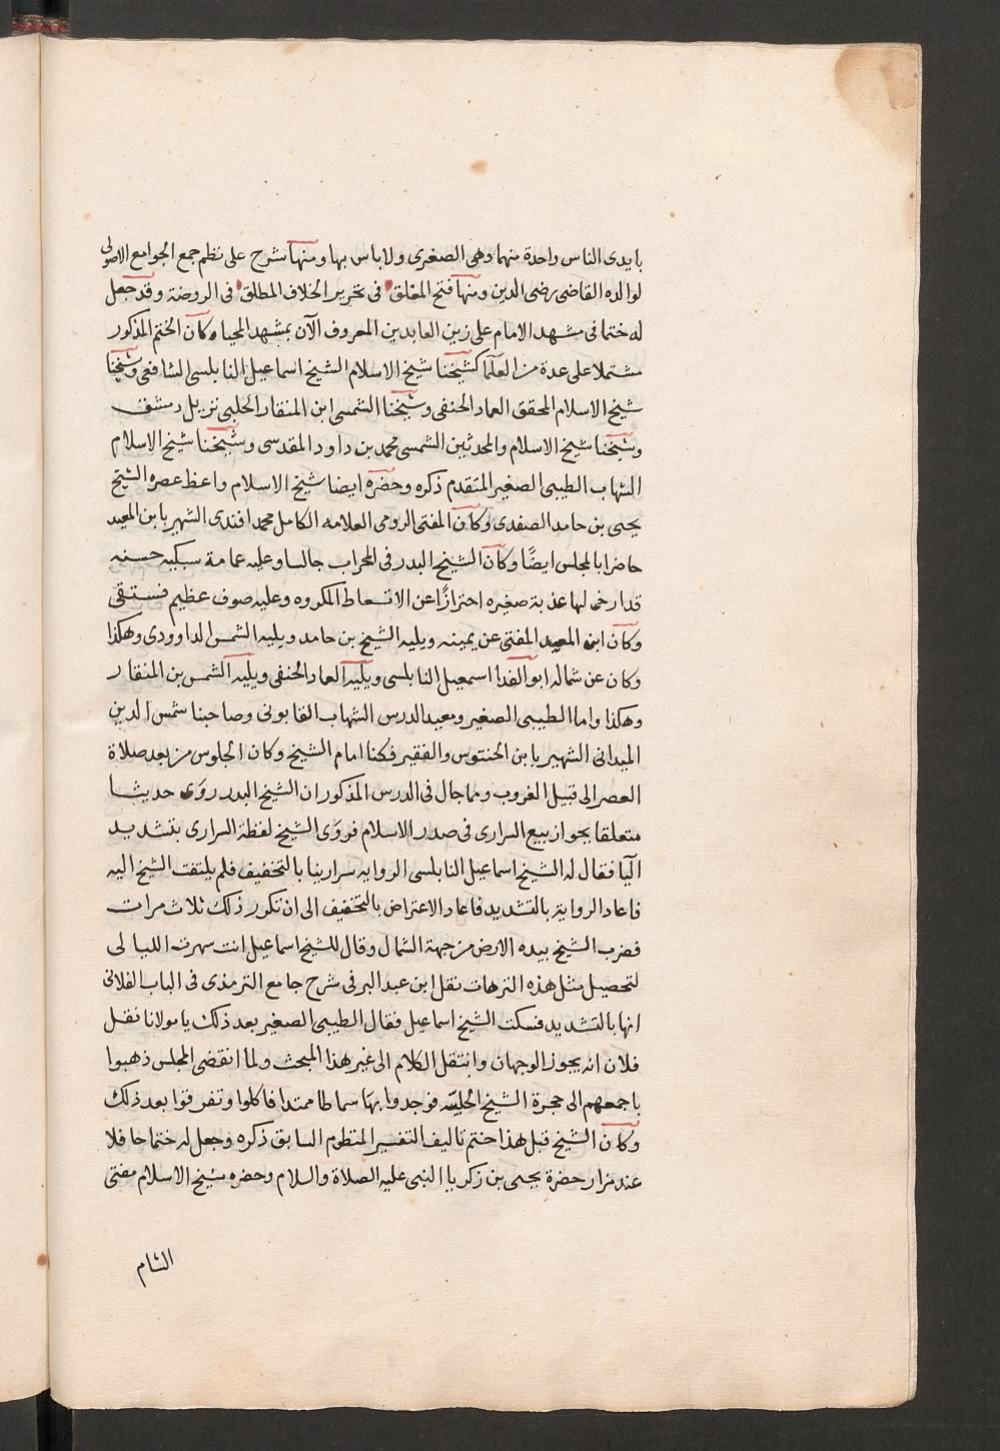 بايدى الناس واحدة منهما وهى الصغرى ولاباس بها ومنها شرح على نظم جمع الجوامع الاصولى
لوالده القاضى رضى الدين ومنها فتح المغلق فى تحرير الخلاف المطلق فى الروضة وقد جعل
له ختما فى مشهد الامام على زين العابدين المعروف الآن بمشهد المحيا وكان الختم المذكور
مشتملا على عدة من العلما كشيخنا شيخ الاسلام الشيخ اسماعيل النابلسى الشافعى وشيخنا
شيخ الاسلام المحقق العماد الحنفى وشيخنا الشمسى ابن المنقار الحلبى نزيل دمشق
وشيخنا شيخ الاسلام والمحدثين الشمسى محمد بن داود المقدسى وشيخنا شيخ الاسلام
الشهاب الطيبى الصغير المتقدم ذكره وحضره ايضا شيخ الاسلام واعظ عصره الشيخ
يحيى بن حامد الصفدى وكان المفتى الرومى العلامه الكامل محمد افندى الشهير بابن المعيد
حاضرا بالمجلس ايضًا وكان الشيخ البدر فى المحراب جالسا وعليه عمامة سبكيه حسنه
قد ارخى لها عذبة صغيره احترازًا عن الاقتعاط المكروه وعليه صوف عظيم فستقى
وكان ابن المعيد المفتى عن يمينه ويليه الشيخ بن حامد ويليه الشمس الداوودى وهكذا
وكان عن شماله ابو الفدا اسمعيل النابلسى ويليه العماد الحنفى ويليه الشمس بن المنقار
وهكذا واما الطيبى الصغير ومعيد الدرس الشهاب القابونى وصاحبنا شمس الدين
الميدانى الشهير بابن الحنتوس والفقير فكنا امام الشيخ وكان الجلوس من بعد صلاة
العصر الى قبيل الغروب ومما جال فى الدرس المذكور ان الشيخ البدر روى حديثا
متعلقا بجواز بيع السرارى فى صدر الاسلام فروى الشيخ لفظة السرارى بتشديد
اليا فقال له الشيخ اسماعيل النابلسى الروايه سرارينا بالتخفيف فلم يلتفت الشيخ اليه
فاعاد الرواية بالتشديد فاعاد الاعتراض بالتخفيف الى ان تكرر ذلك ثلاث مرات
فضرب الشيخ بيده الارض من جهة الشمال وقال للشيخ اسماعيل انت سهرت الليالى
لتحصيل مثل هذه الترهات نقل ابن عبد البر فى شرح جامع الترمذى فى الباب الفلانى
انها بالتشديد فسكت الشيخ اسماعيل فقال الطيبى الصغير بعد ذلك يا مولانا نقل
فلان انه يجوز الوجهان وانتقل الكلام الى غير هذا المبحث ولما انقضى المجلس ذهبوا
باجمعهم الى حجرة الشيخ الحلبيه فوجدوا بها سماطا ممتدا فاكلوا وتفرقوا بعد ذلك
وكان الشيخ قبل هذا ختم تاليف التفسير المنظوم السابق ذكره وجعل له ختما حافلا
عند مزار حضرة يحيى بن زكريا النبى عليه الصلاة والسلام وحضره شيخ الاسلام مفتى
الشام